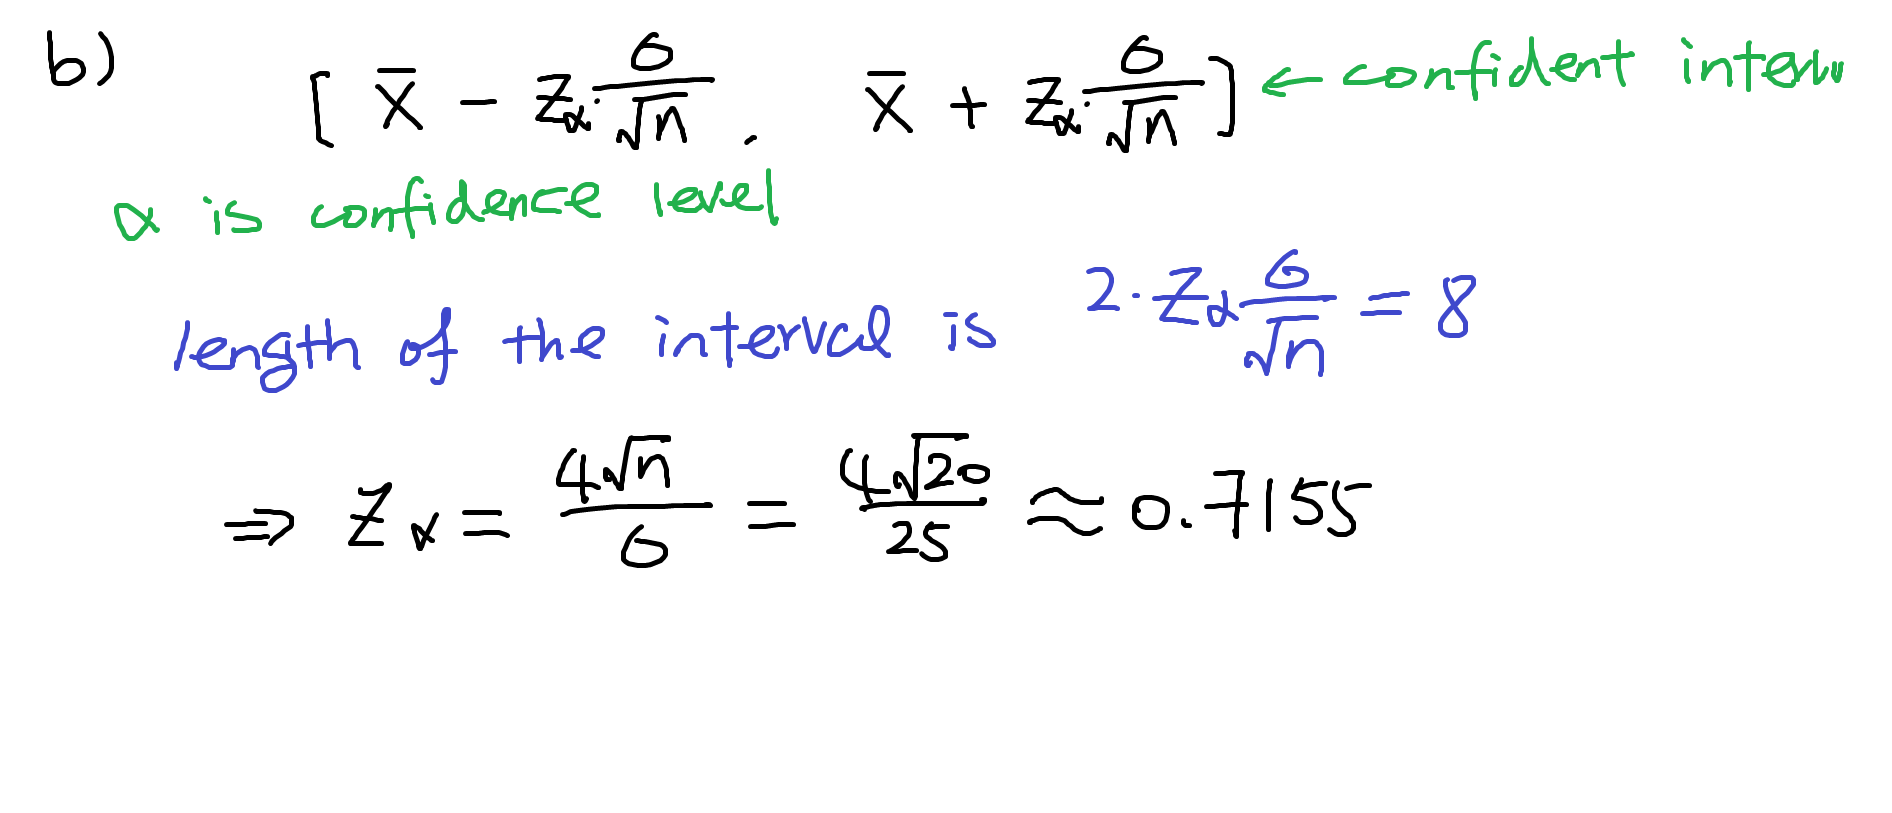 b)
[ X̄ - Z_α · σ/√n . X̄ + Z_α · σ/√n ] ← confident
α is confidence level
length of the interval is 2 · Z_α σ/√n = 8
⇒ Z_α = 4√n/σ = 4√20/25 ≈ 0.7155